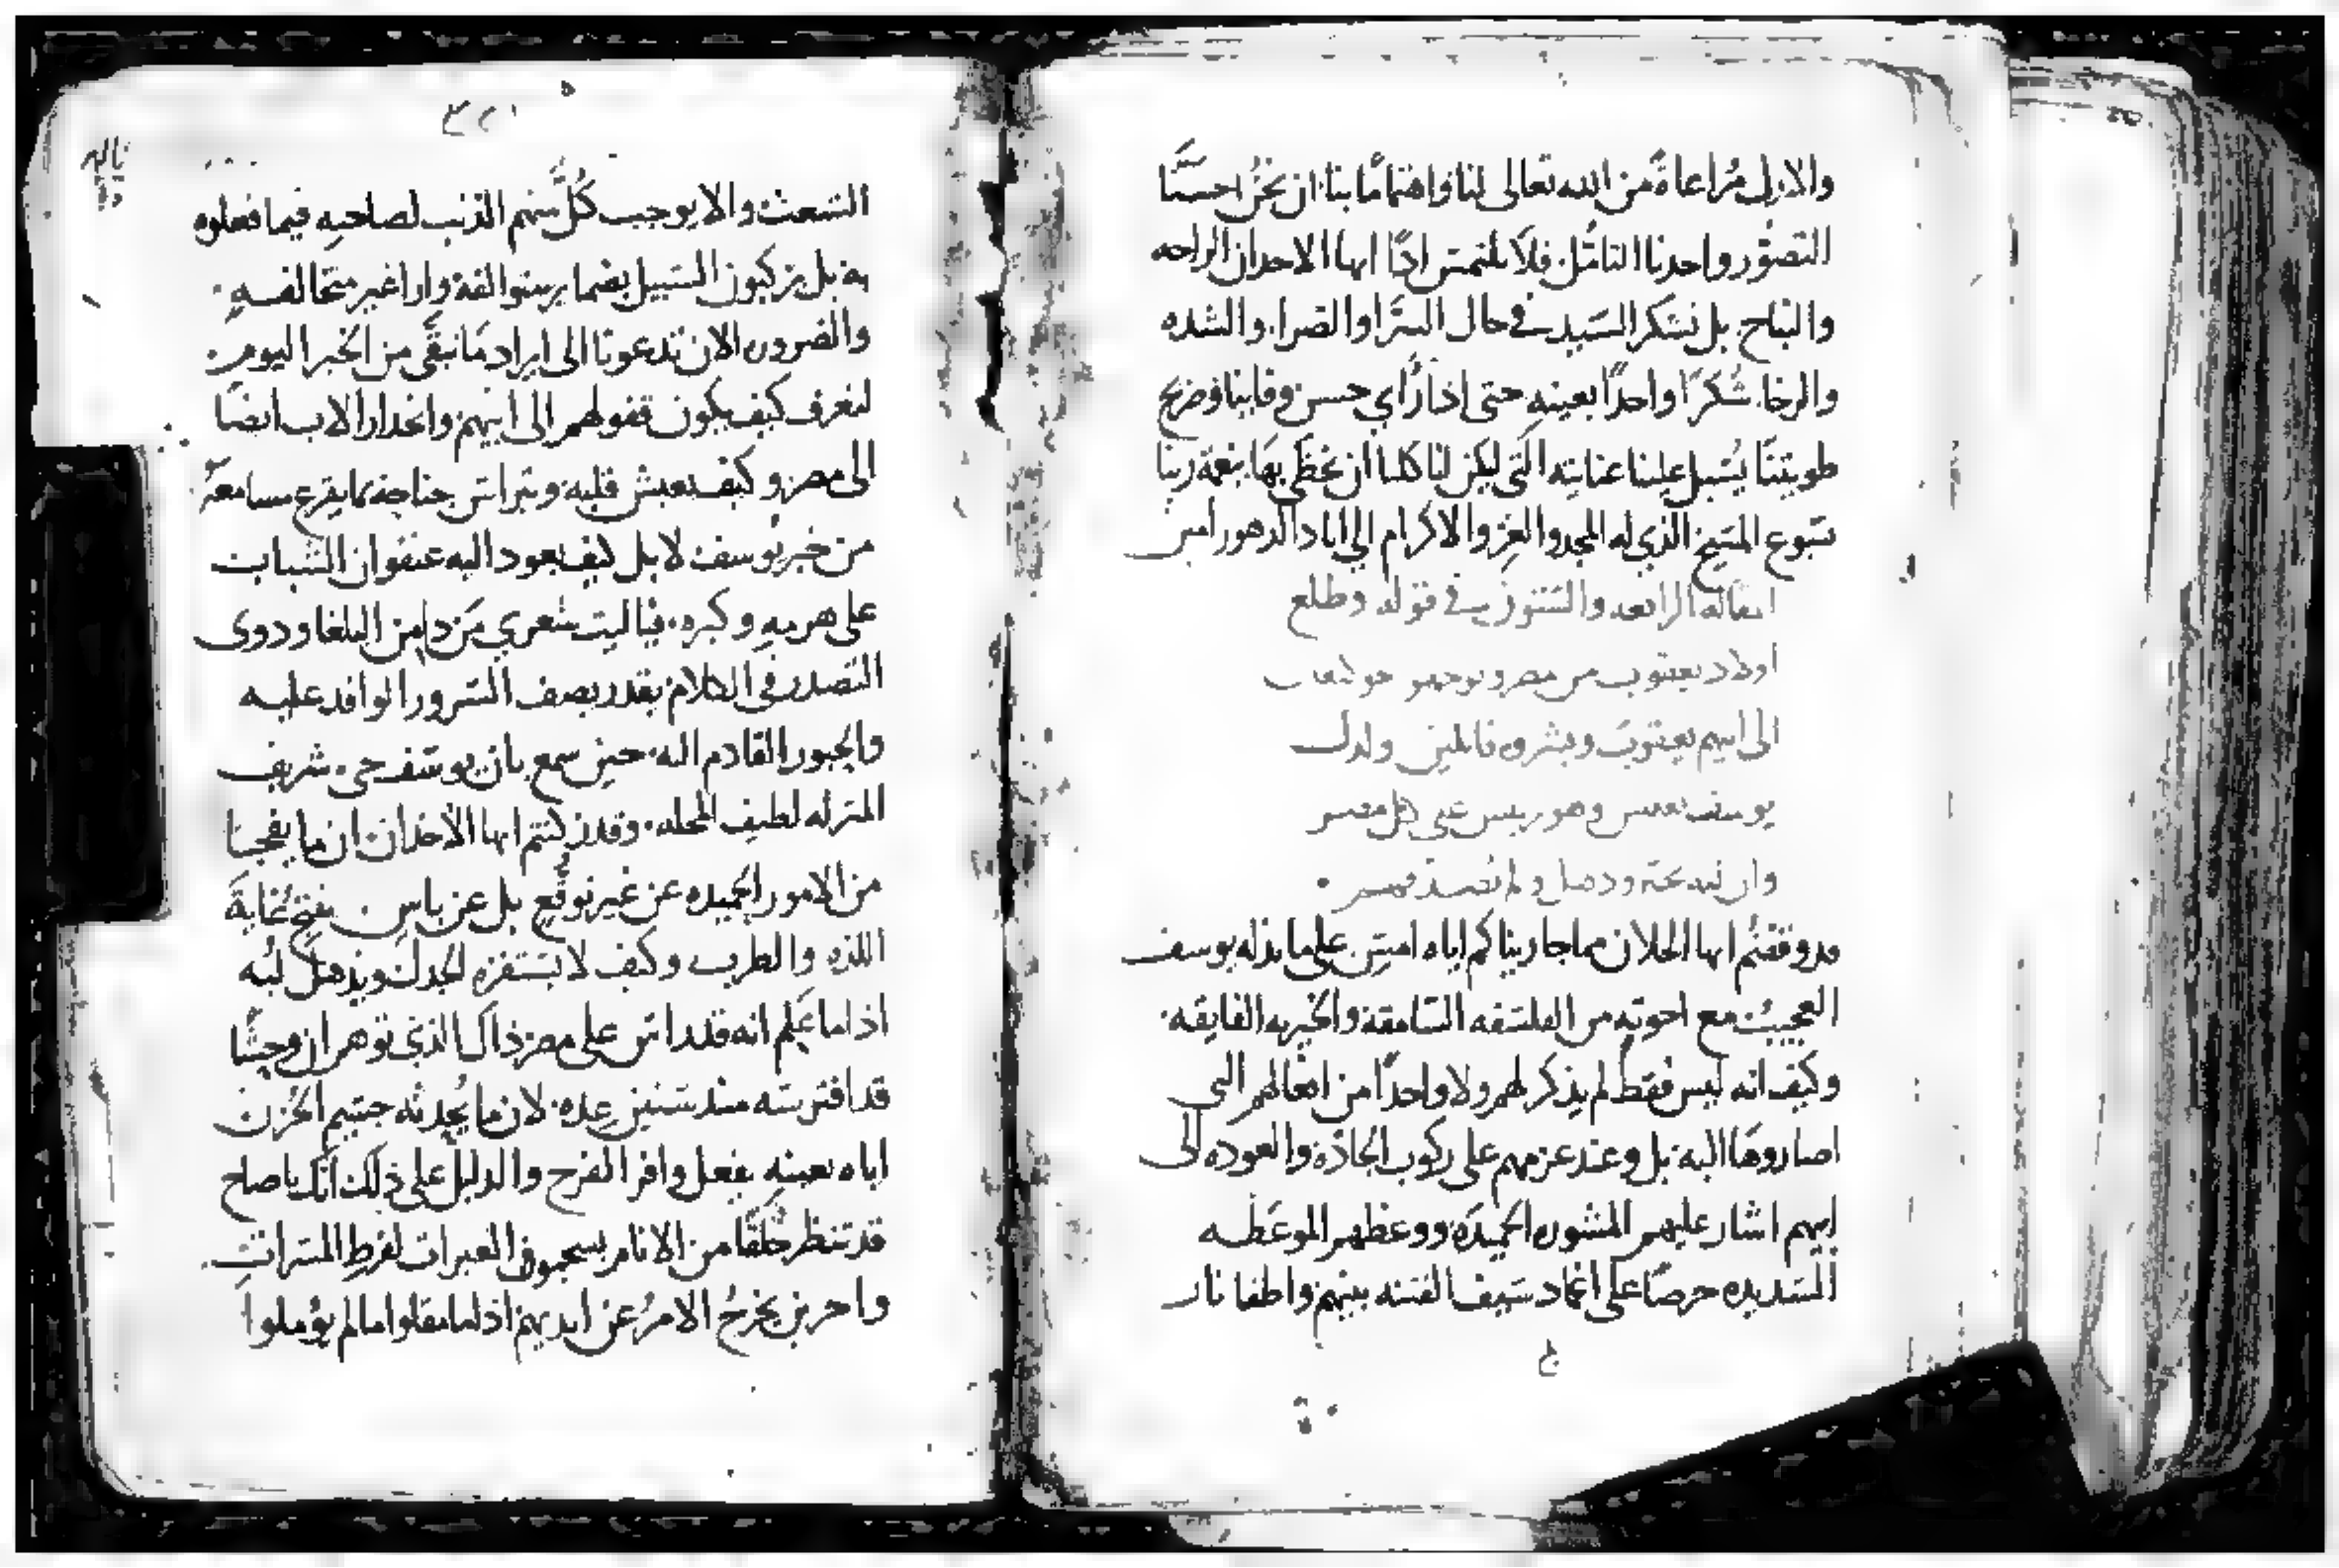 والاول مراعاة من الله تعالى لنا واهتمامًا بنا ان نحن احسنّا
التصوّر واجدنا التأمّل فلا نلتمس اذًا ايها الاخدان الراحه
والنياح بل نشكر السيد في حال السرّا والضرا والشده
والرخا شكرًا واحدًا بعينه حتى اذا رأي حسن وفاينا وصريح
طويتنا يُسبل علينا عنايته التي ليكن لنا كلنا ان نحظى بها بنعمة ربنا
يسوع المسيح الذي له المجد والعز والاكرام الى اباد الدهور امين
المقاله الرابعه والستون في قوله وطلع
اولاد يعقوب من مصر وتوجهو نحو كنعان
الى ابيهم يعقوب وبشروه قايلين ولدك
يوسف يعيش وهو رييس على كل مصر
وان لبه تحير وذهل ولم يصدقهم
قد وقفتم ايها الخلان مما جاريناكم اياه امس على ما بذله يوسف
العجيب مع اخوته من الفلسفه السامقة والخيريه الفايقه
وكيف انه ليس فقط لم يذكر لهم ولا واحدًا من افعالهم التي
اصاروها اليه بل وعند عزمهم على ركوب الجادّة والعوده الى
ابيهم اشار عليهم المشوره الحميدة ووعظهم الموعظه
السديده حرصًا على اغماد سيف الفتنه بينهم واطفا نار
الشعث والا يوجب كلّ منهم الذنب لصاحبه فيما فعلوه
به بل يزكبون السبيل بضماير متوالفة وارا غير متخالفه
والضروره الان تدعونا الى ايراد ما تبقى من الخبر اليوم
لنعرف كيف يكون قفولهم الى ابيهم وانحدار الاب ايضًا
الى مصر وكيف يعيش قلبه ويتراش جناحه بما يقرع مسامعه
من خبر يوسف لا بل كيف يعود اليه عنفوان الشبابت
على هرمه وكبره فياليت شعري من ذا من البلغا وذوى
التصدر في الكلام يقدر يصف السرور الوافد عليه
والحبور القادم اليه حين سمع بان يوسف حي شريف
المنزله لطيف المحله وقد كنتم ايها الاخدان ان ما يفجينا
من الامور الحميده عن غير توقّع بل عن ياس يفتح غاية
اللذه والطرب وكيف لا يستفزه الجدل ويذهل لبه
اذا ما علم انه قد راس على مصر ذاك الذي توهم ان وحشًا
قد افترسه منذ سنين عده لان ما يُحدثه جسيم الحزن
اياه بعينه يفعل وافر الفرح والدليل على ذلك انك يا صاح
قد تنظر خلقًا من الانام يسحبون العبرات لفرط المسرات
واخرين يخرج الامر عن ايديهم اذا ما مقلوا ما لم يؤملوا